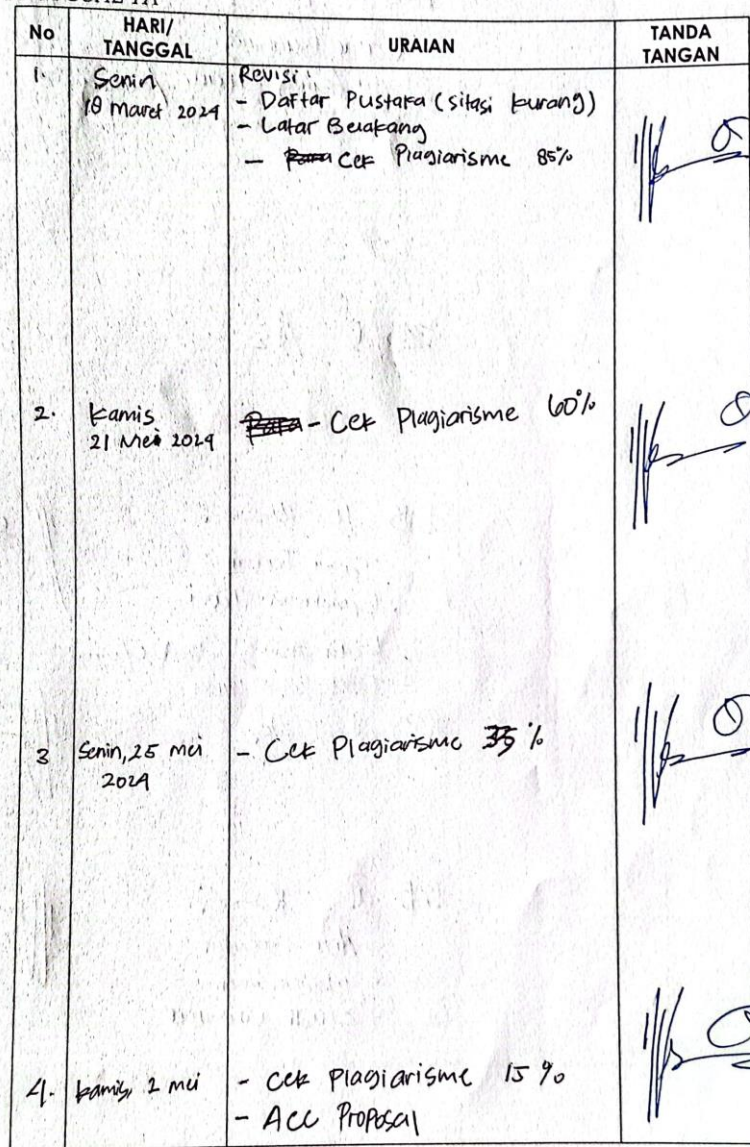 No
HARI/
TANGGAL
URAIAN
TANDA
TANGAN
1.
Senin
18 maret 2024
Revisi:
- Daftar Pustaka (sitasi kurang)
- Latar Belakang
- Cek Plagiarisme 85%
2.
Kamis
21 Mei 2024
- Cek Plagiarisme 60%
3
Senin, 25 mei
2024
- Cek Plagiarisme 35 %
4.
kamis, 2 mei
- Cek Plagiarisme 15 %
- Acc Proposal